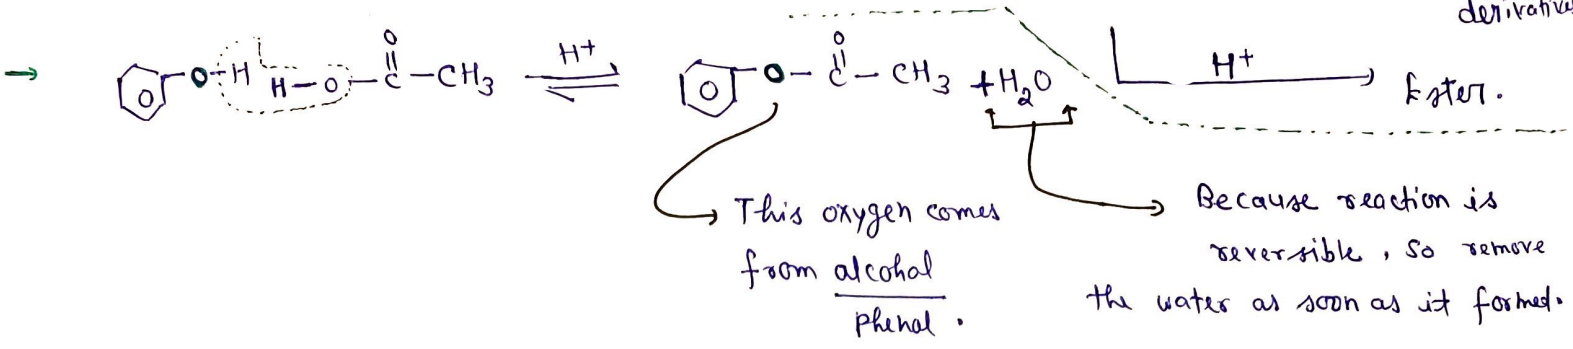 derivative
→ O-H H-O-C-CH3 ⇌ O-C-CH3 + H2O
O
||
H+
O
||
H+
Ester.
This oxygen comes
from alcohal
phenol.
Because reaction is
reversible, so remove
the water as soon as it formed.